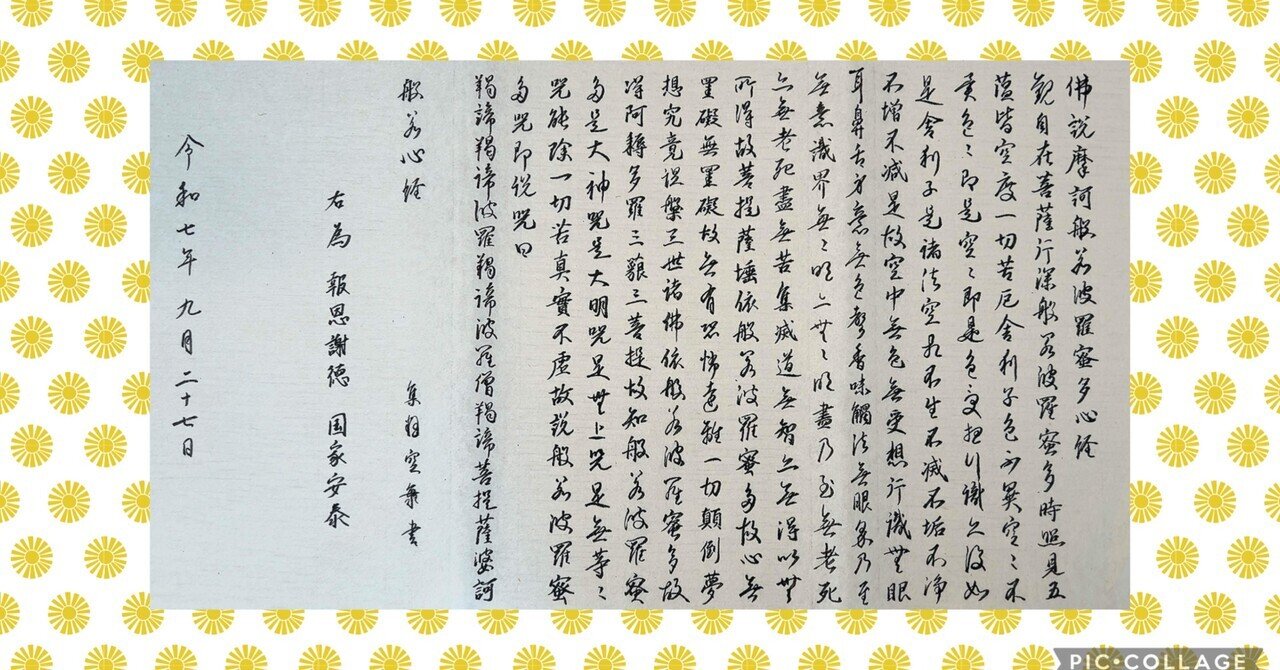 佛説摩訶般若波羅蜜多心経
観自在菩薩行深般若波羅蜜多時照見五
蘊皆空度一切苦厄舎利子色不異空〻不
異色〻即是空〻即是色受想行識亦復如
是舎利子是諸法空相不生不滅不垢不浄
不増不減是故空中無色無受想行識無眼
耳鼻舌身意無色聲香味觸法無眼界乃至
無意識界無〻明亦無〻明盡乃至無老死
亦無老死盡無苦集滅道無智亦無得以無
所得故菩提薩埵依般若波羅蜜多故心無
罣礙無罣礙故無有恐怖遠離一切顛倒夢
想究竟涅槃三世諸佛依般若波羅蜜多故
得阿耨多羅三藐三菩提故知般若波羅蜜
多是大神咒是大明咒是無上咒是無等〻
咒能除一切苦真實不虚故説般若波羅蜜
多咒即説咒曰
羯諦羯諦波羅羯諦波羅僧羯諦菩提薩婆訶
般若心経
集 空 書
右為 報恩謝徳 国家安泰
令和七年九月二十七日
PIC•COLLAGE